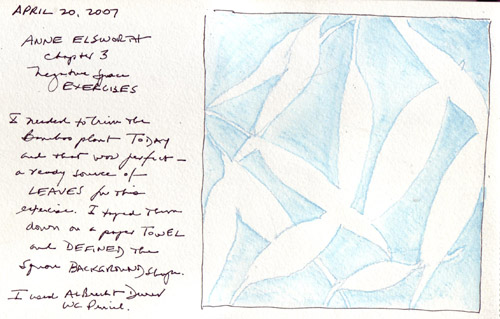 APRIL 20, 2007
ANNE ELSWORTH
Chapter 3
Negative Space
EXERCISES
I needed to trim the
Bamboo plant TODAY
and that was perfect –
a ready source of
LEAVES for this
exercise. I taped them
down on a paper TOWEL
and DEFINED the
Square BACKGROUND shape.
I used Albrecht Durer
WC Pencil.